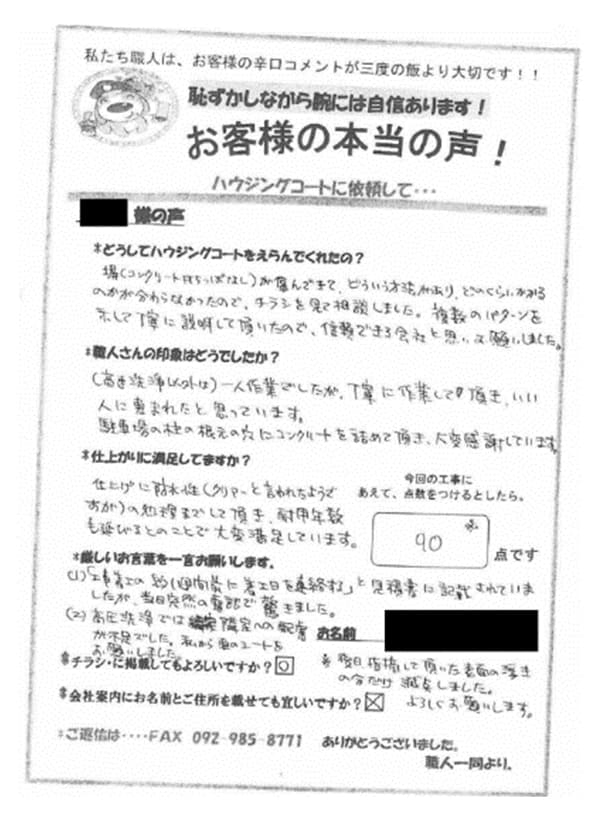 私たち職人は、お客様の辛口コメントが三度の飯より大切です！！
恥ずかしながら腕には自信あります！
お客様の本当の声！
ハウジングコートに依頼して・・・
様の声
*どうしてハウジングコートをえらんでくれたの？
塀(コンクリート打ちっぱなし)が傷んできて、どういう方法があり、どのくらいかかる
のかが分からなかったので、チラシを見て相談しました。複数のパターンを
示して丁寧に説明して頂いたので、信頼できる会社と思いお願いしました。
*職人さんの印象はどうでしたか？
(高圧洗浄以外は)一人作業でしたが、丁寧に作業して頂き、いい
人に恵まれたと思っています。
駐車場の柱の根元の穴にコンクリートを詰めて頂き、大変感謝しています。
*仕上がりに満足してますか？
仕上げに防水性(クリアーと言われたようで
すが)の処理までして頂き、耐用年数
も延びるとのことで大変満足しています。
今回の工事に
あえて、点数をつけるとしたら。
90
点です
*厳しいお言葉を一言お願いします。
(1)「工事着工の約1週間前に着工日を連絡する」と見積書に記載されていま
したが、当日突然の電話で驚きました。
(2)高圧洗浄では隣家への配慮
が不足でした。私から車のシートを
お願いしました。
お名前
*チラシ・に掲載してもよろしいですか？
※翌日、指摘して頂いた表面の浮き
の分だけ減点しました。
よろしくお願いします。
*会社案内にお名前とご住所を載せても宜しいですか？
*ご返信は・・・・FAX 092-985-8771
ありがとうございました。
職人一同より。